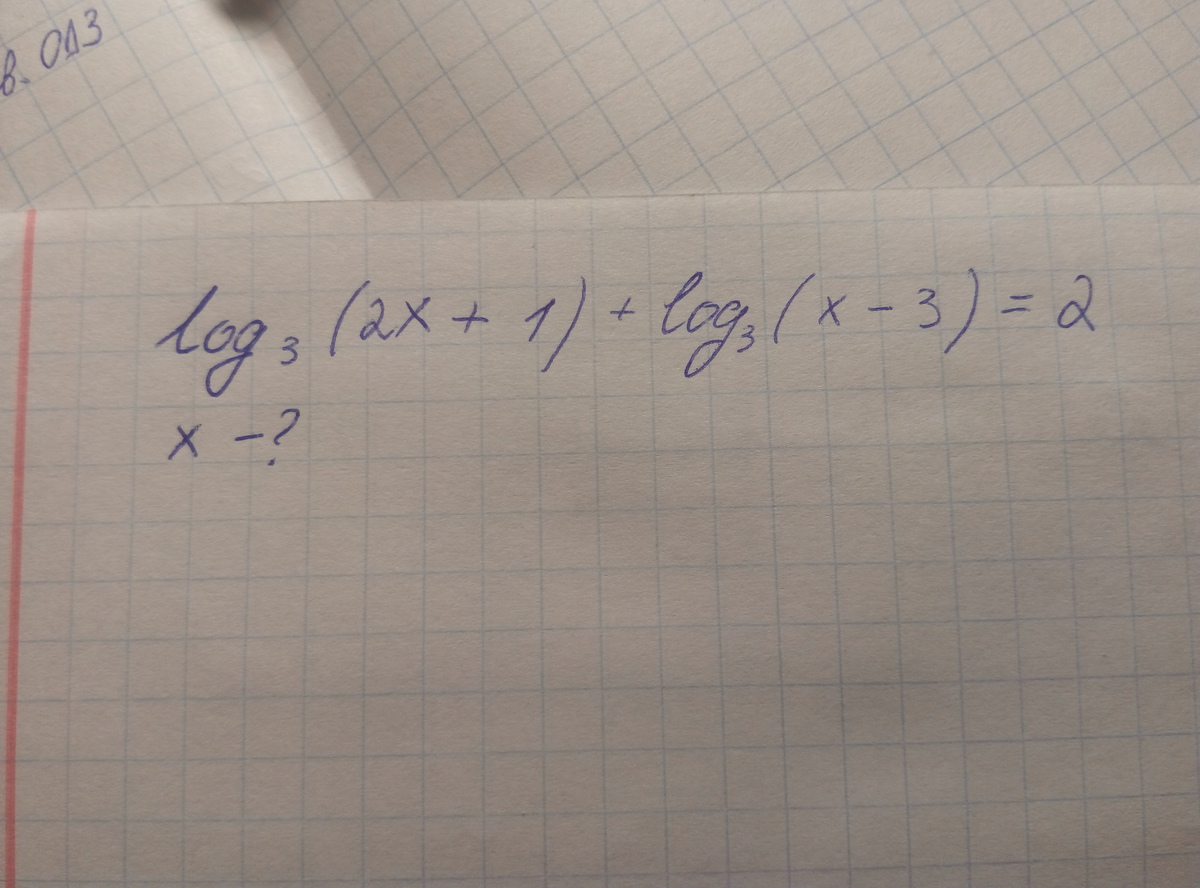 в. ОДЗ
log₃ (2x + 1) + log₃ (x - 3) = 2
x - ?